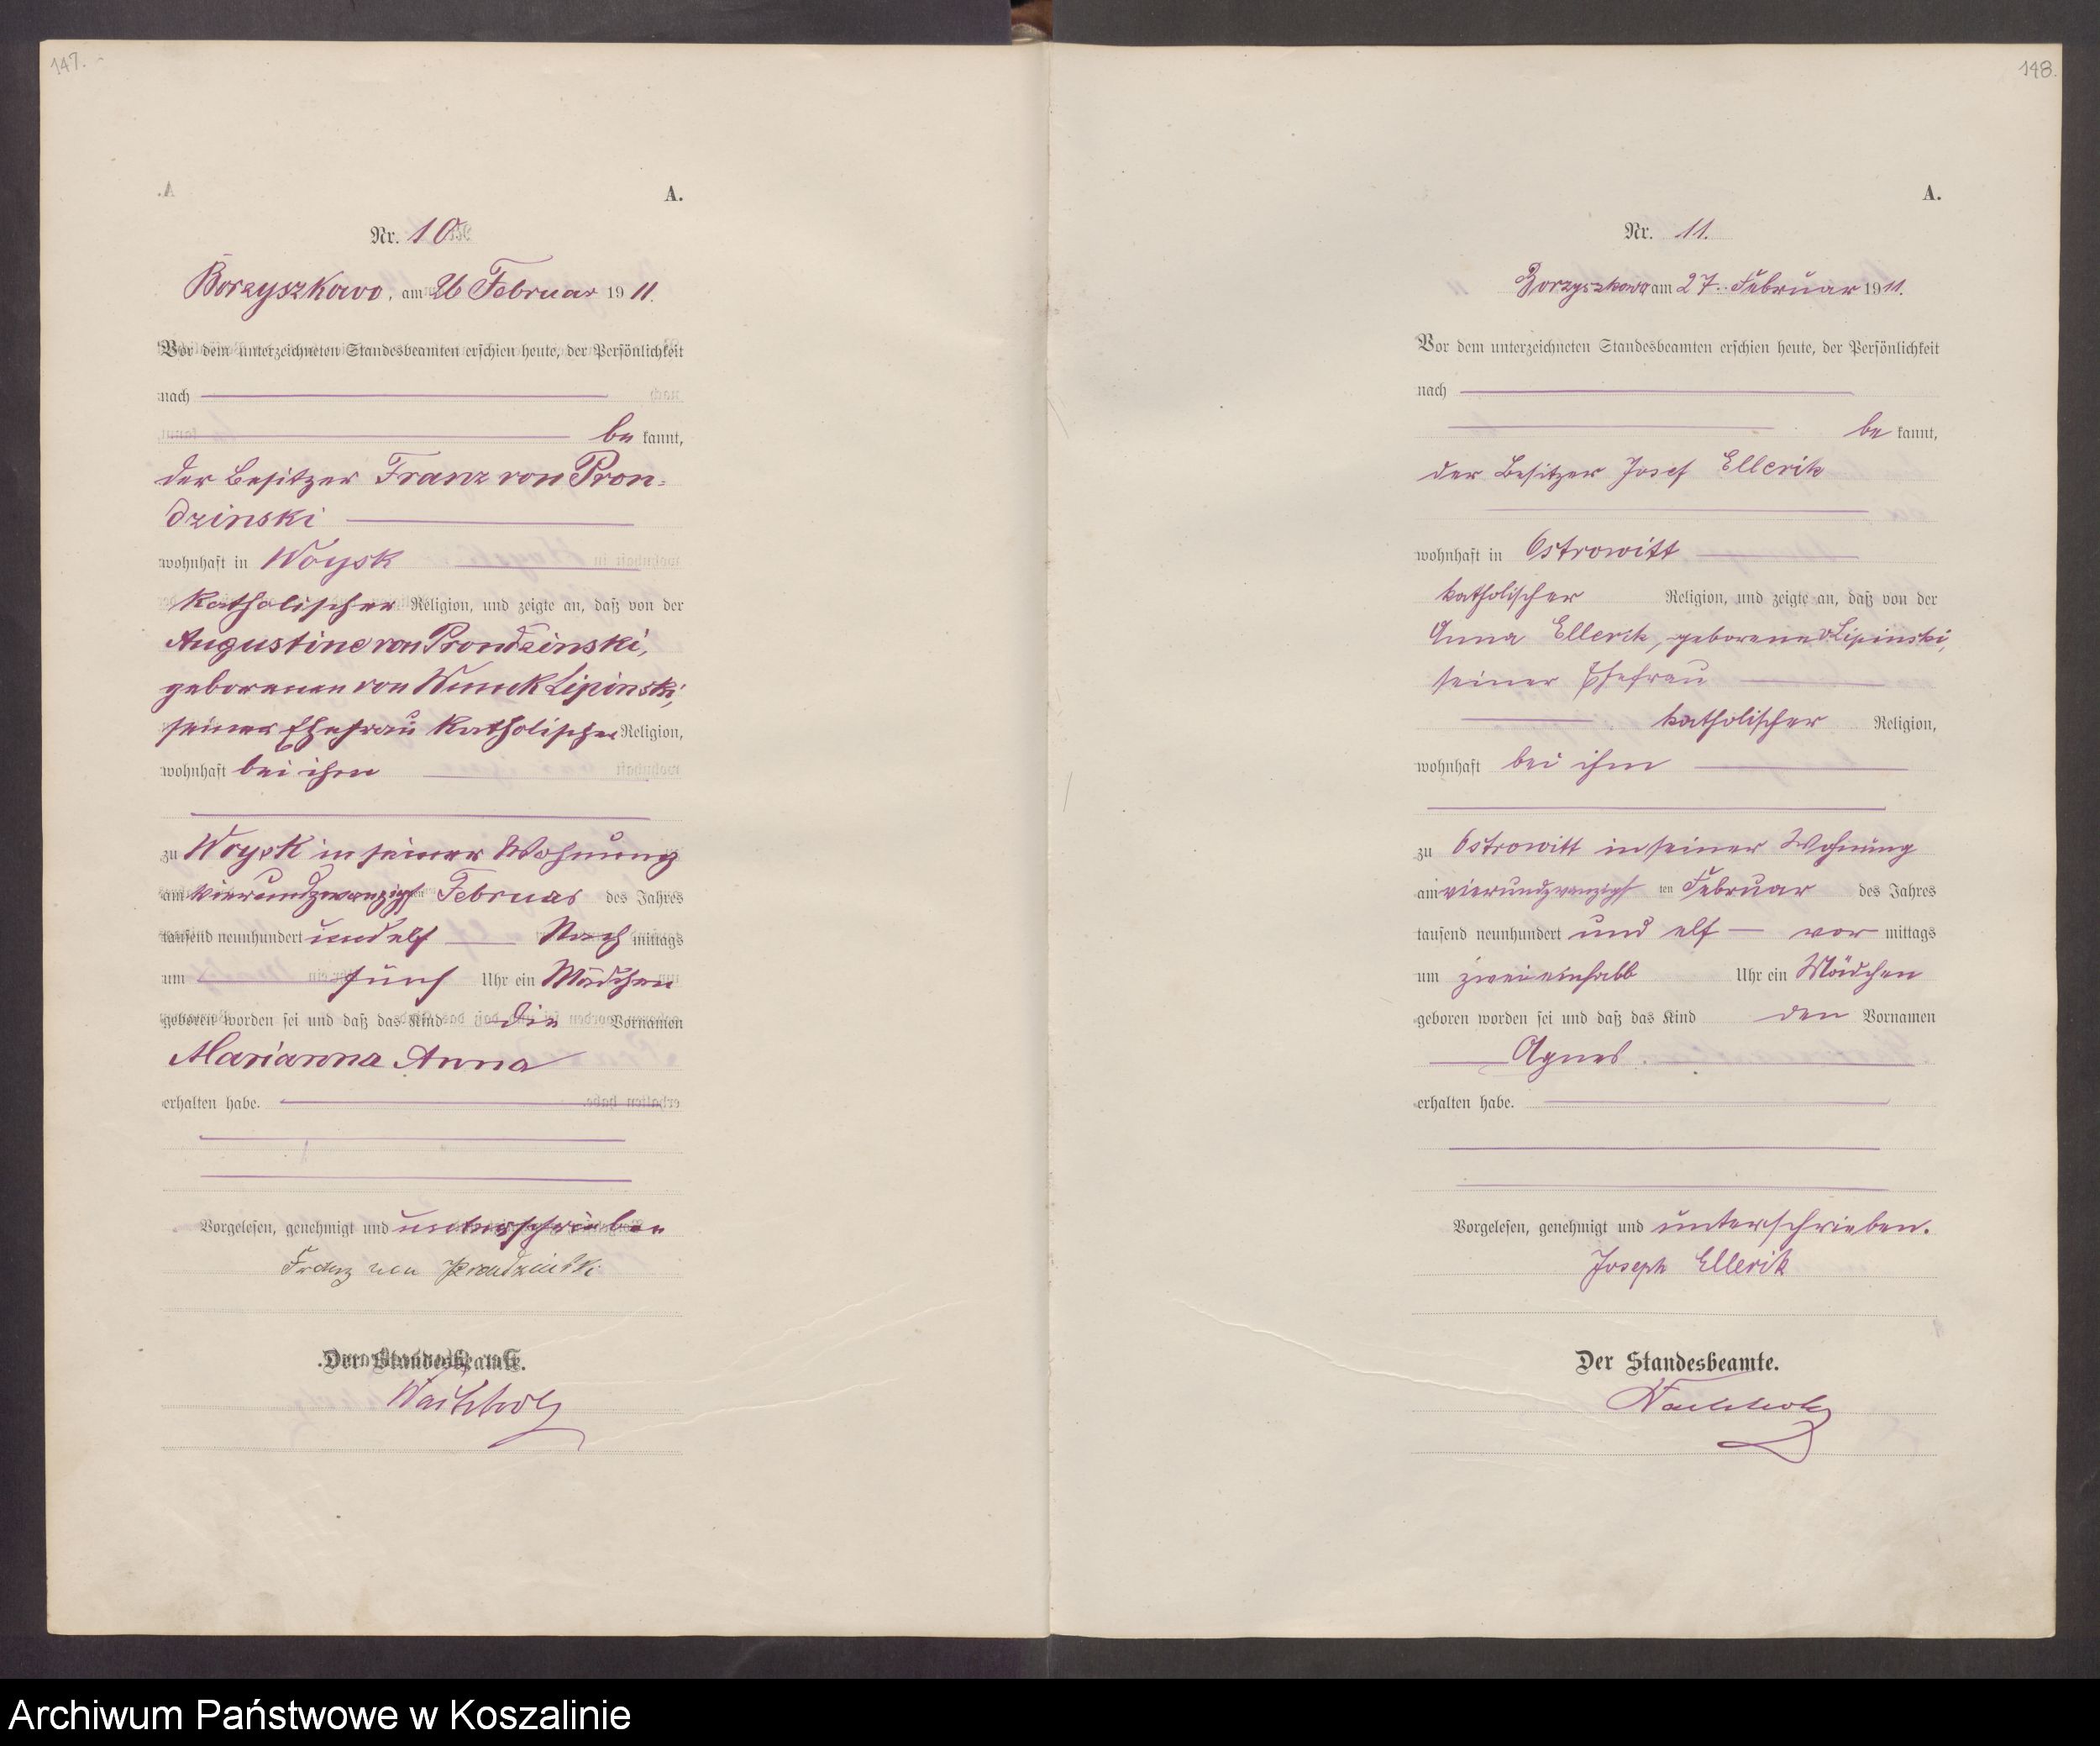 147.
A.
Nr. 10
Borzyszkowo, am 26 Februar 1911.
Vor dem unterzeichneten Standesbeamten erschien heute, der Persönlichkeit
nach
be kannt,
der Besitzer Franz von Pron-
dzinski
wohnhaft in Woysk
katholischer Religion, und zeigte an, daß von der
Augustine von Prondzinski,
geborenen von Wnuck Lipinski,
seiner Ehefrau katholischer Religion,
wohnhaft bei ihm
zu Woysk in seiner Wohnung
am vierundzwanzigsten Februar des Jahres
tausend neunhundert und elf Nach mittags
um fünf Uhr ein Mädchen
geboren worden sei und daß das Kind die Vornamen
Marianna Anna
erhalten habe.
Vorgelesen, genehmigt und unterschrieben
Franz von Prondzinski
Der Standesbeamte.
148.
A.
Nr. 11.
Borzyszkowo am 27. Februar 1911.
Vor dem unterzeichneten Standesbeamten erschien heute, der Persönlichkeit
nach
be kannt,
der Besitzer Josef Ellerik
wohnhaft in Ostrowitt
katholischer Religion, und zeigte an, daß von der
Anna Ellerik, geborene v Lipinski,
seiner Ehefrau
katholischer Religion,
wohnhaft bei ihm
zu Ostrowitt in seiner Wohnung
am vierundzwanzigsten Februar des Jahres
tausend neunhundert und elf vor mittags
um zweieinhalb Uhr ein Mädchen
geboren worden sei und daß das Kind den Vornamen
Agnes.
erhalten habe.
Vorgelesen, genehmigt und unterschrieben.
Joseph Ellerik
Der Standesbeamte.
Archiwum Państwowe w Koszalinie